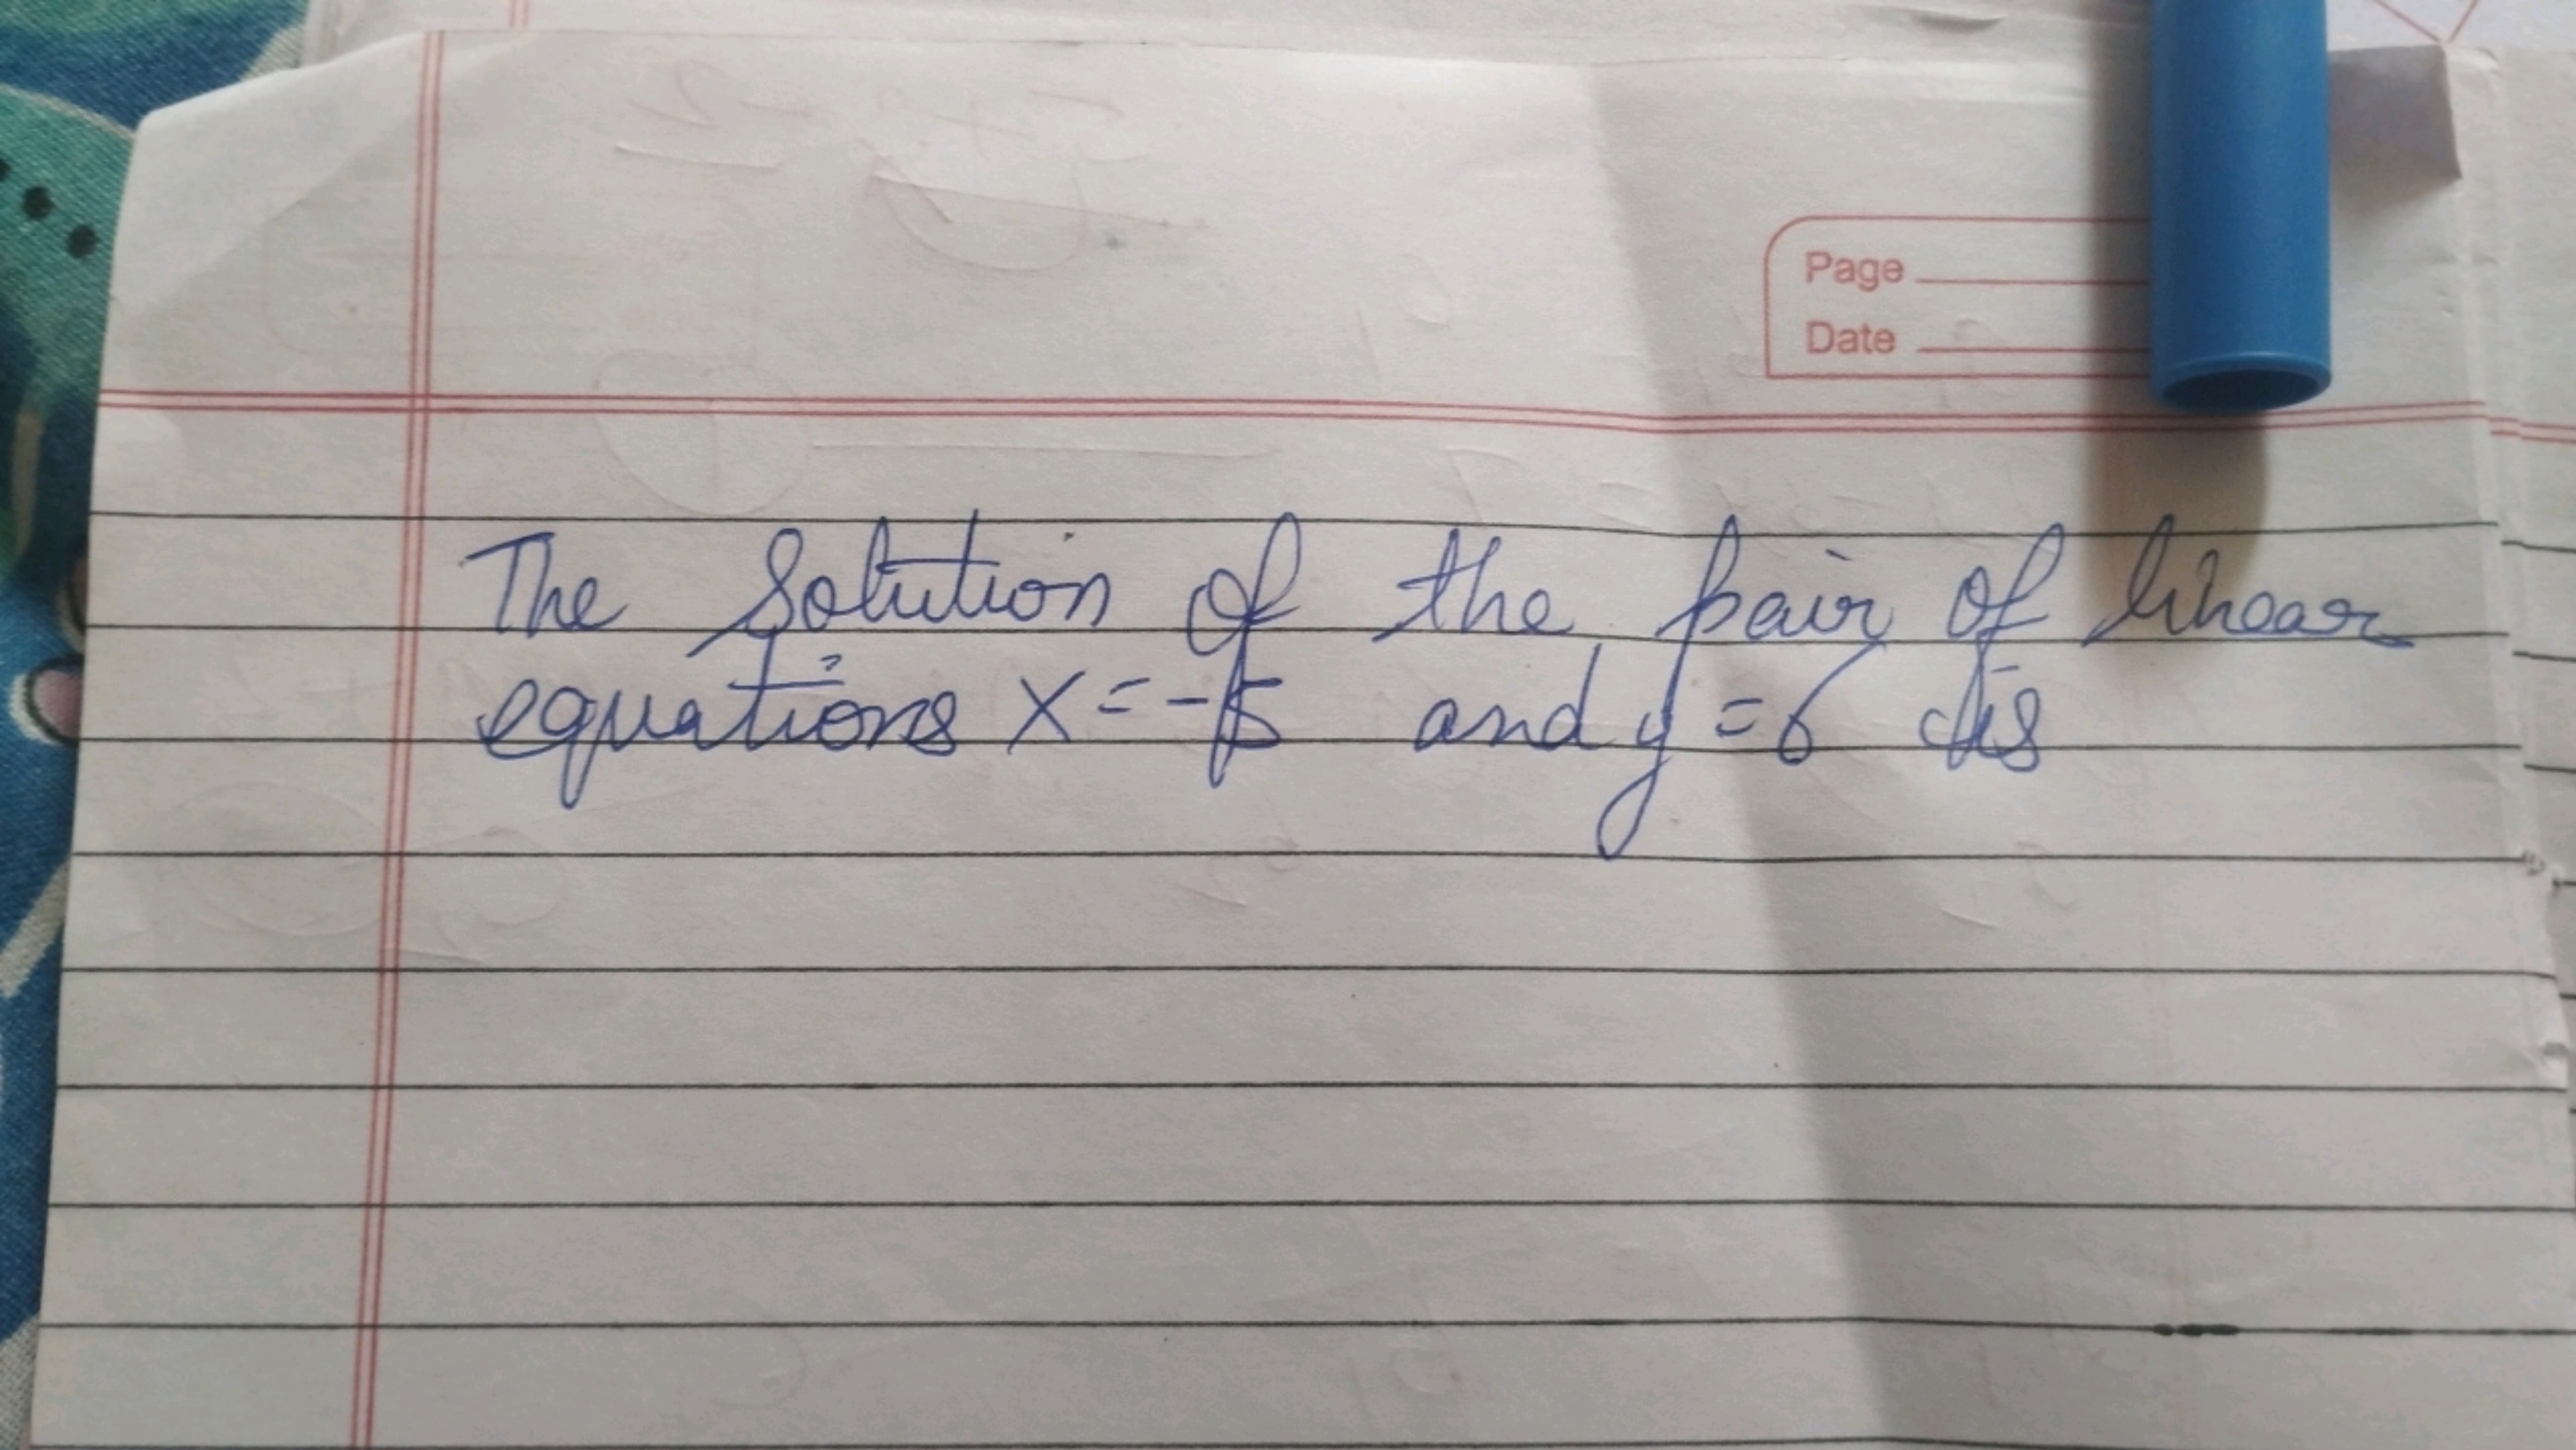 Page
Date
The Solution of the pair of linear
equations x = -5 and y = 6 is